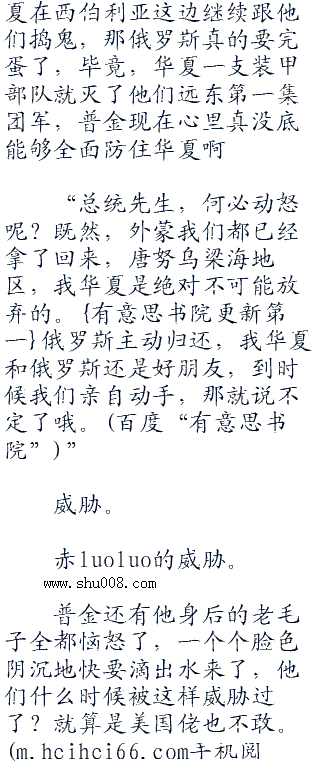 夏在西伯利亚这边继续跟他
们捣鬼，那俄罗斯真的要完
蛋了，毕竟，华夏一支装甲
部队就灭了他们远东第一集
团军，普金现在心里真没底
能够全面防住华夏啊
“总统先生，何必动怒
呢？既然，外蒙我们都已经
拿了回来，唐努乌梁海地
区，我华夏是绝对不可能放
弃的。{有意思书院更新第
一}俄罗斯主动归还，我华夏
和俄罗斯还是好朋友，到时
候我们亲自动手，那就说不
定了哦。(百度“有意思书
院”)”
威胁。
赤luoluo的威胁。
www.shu008.com
普金还有他身后的老毛
子全都恼怒了，一个个脸色
阴沉地快要滴出水来了，他
们什么时候被这样威胁过
了？就算是美国佬也不敢。
(m.hcihci66.com手机阅